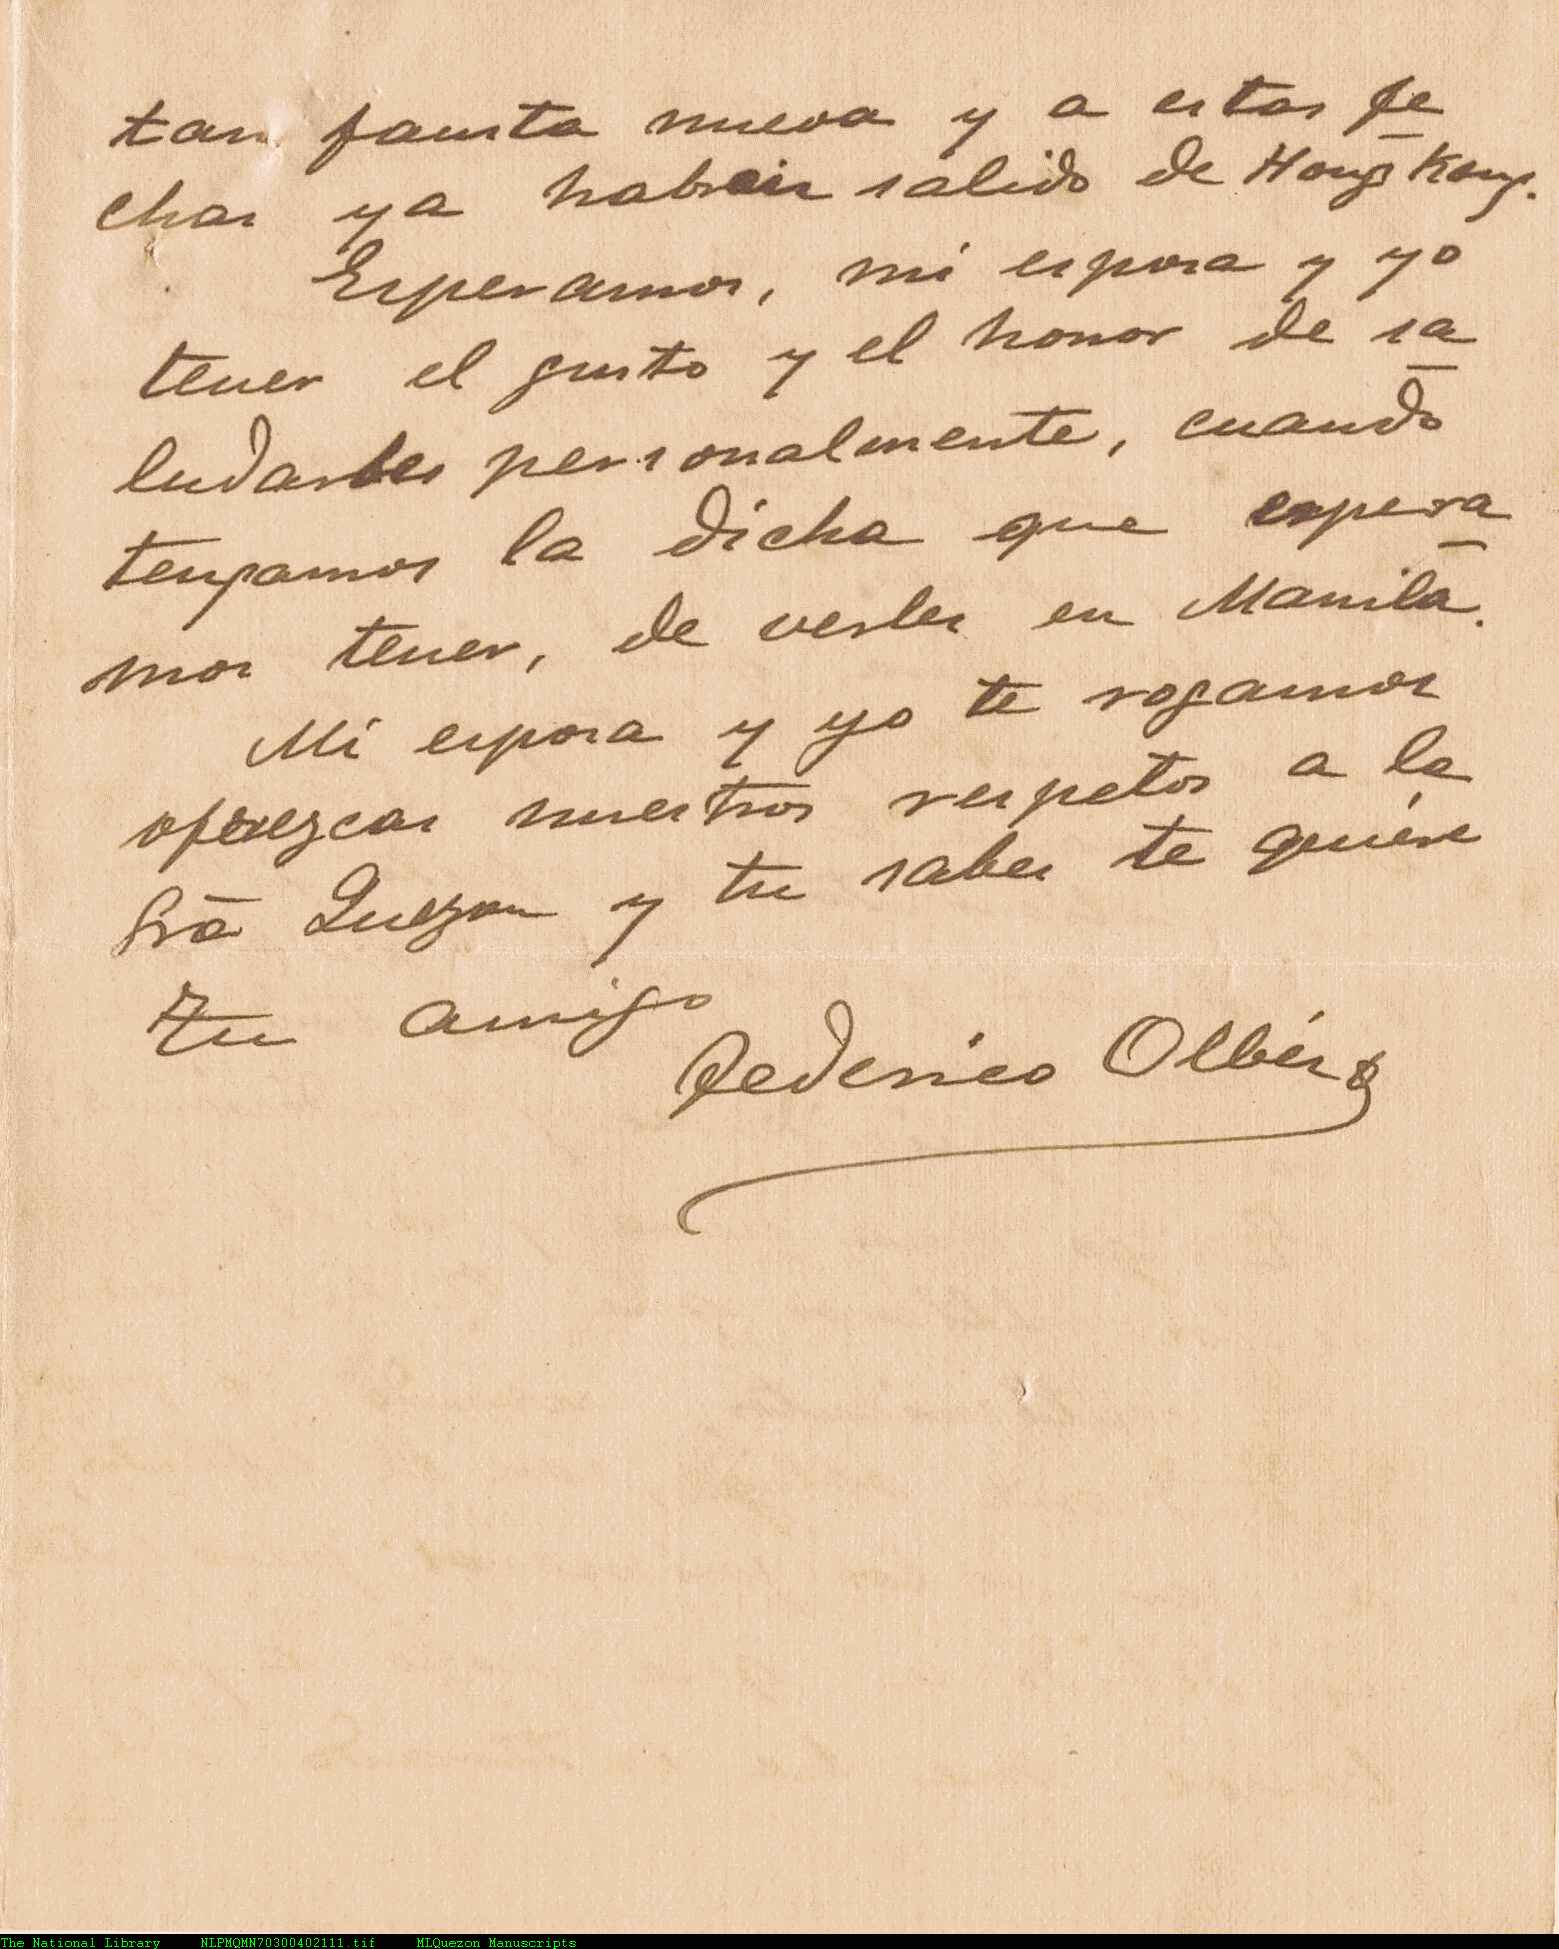 tan fausta nueva y a estas fe
chas ya habreis salido de Hong Kong.
Esperamos, mi esposa y yo
tener el gusto y el honor de sa
ludarles personalmente, cuando
tengamos la dicha que espera
mos tener, de verles en Manila.
Mi esposa y yo te rogamos
ofrezcas nuestros respetos a la
Srā Quezon y tu sabes te quiere
tu amigo
Federico Olbés
The National Library NLPMQMN70300402111.tif MLQuezon Manuscripts